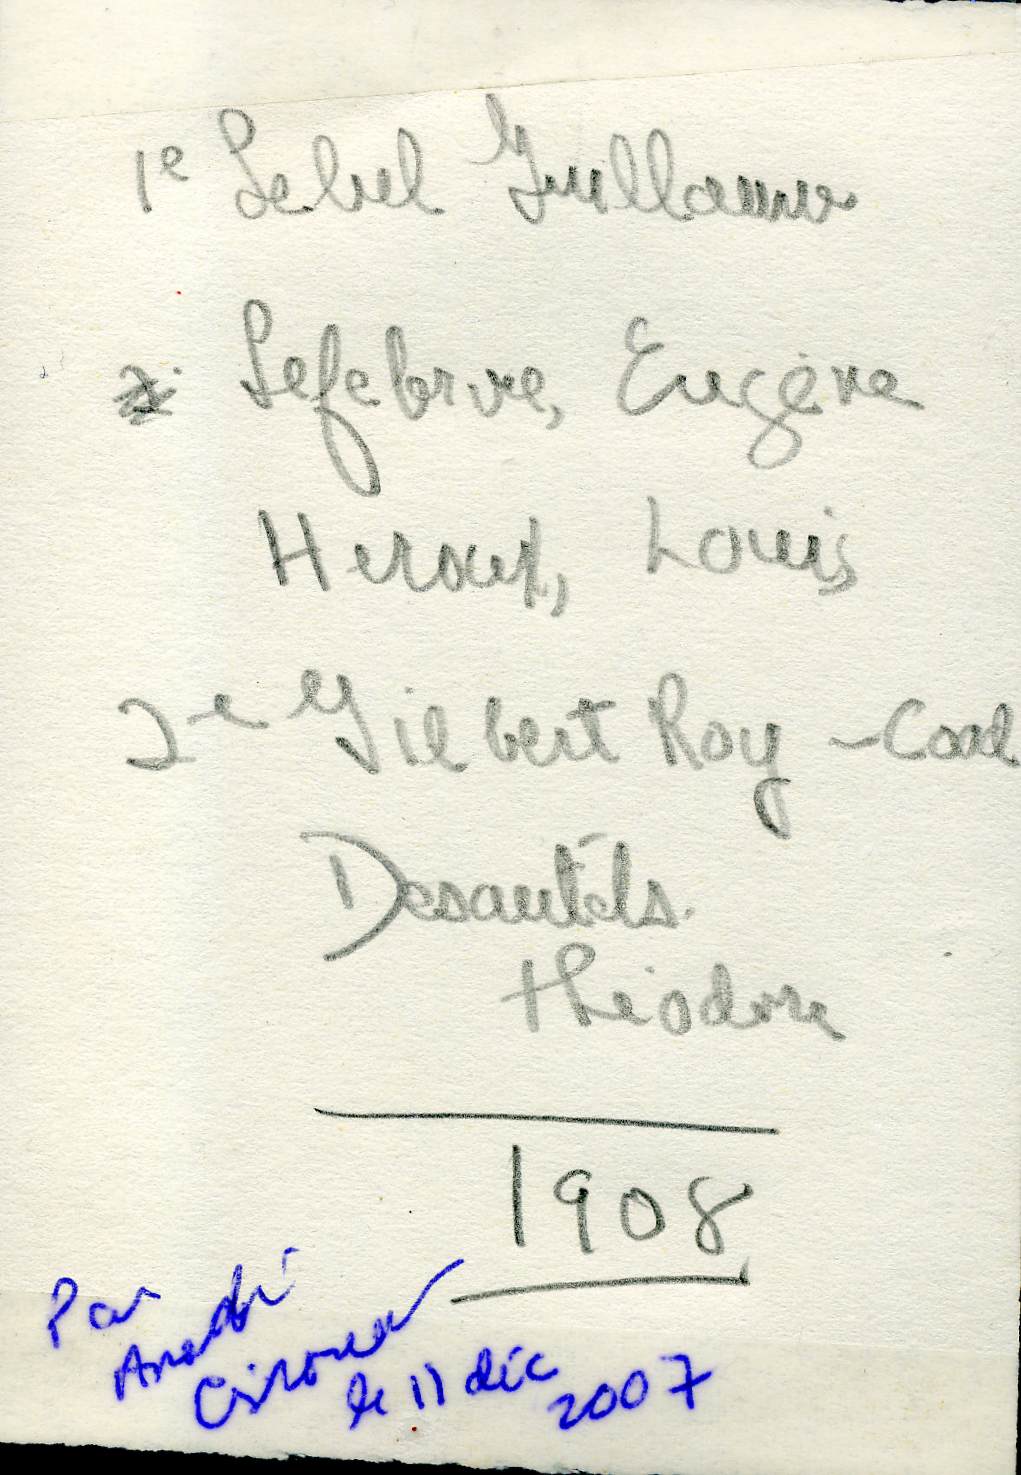 1e Lebel Guillaume
Lefebvre, Eugène
Heroux, Louis
2-e Gilbert Roy - Coad
Desautels.
Théodore
1908
Par
André
le 11 déc
2007